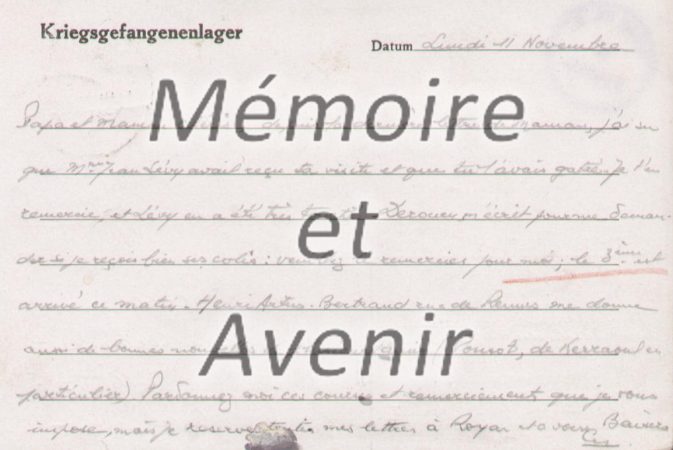 Kriegsgefangenenlager
Datum Lundi 11 Novembre
Mémoire
Papa et Maman dernière lettre de Maman, j'ai su
que Mme Jean Lévy avait reçu ta visite et que tu l'avais gâtée. Je t'en
remercie, et Lévy en a été très m'écrit pour me deman-
et
der si je reçois bien ses colis : remercier pour moi ; le 3ème est
arrivé ce matin. Henri Artus-Bertrand rue de Rennes me donne
aussi de bonnes en
Avenir
particulier) Pardonnez moi ces courses et remerciement que je vous
impose, mais je réserve toutes mes lettres à Royan et à vous. Baisers